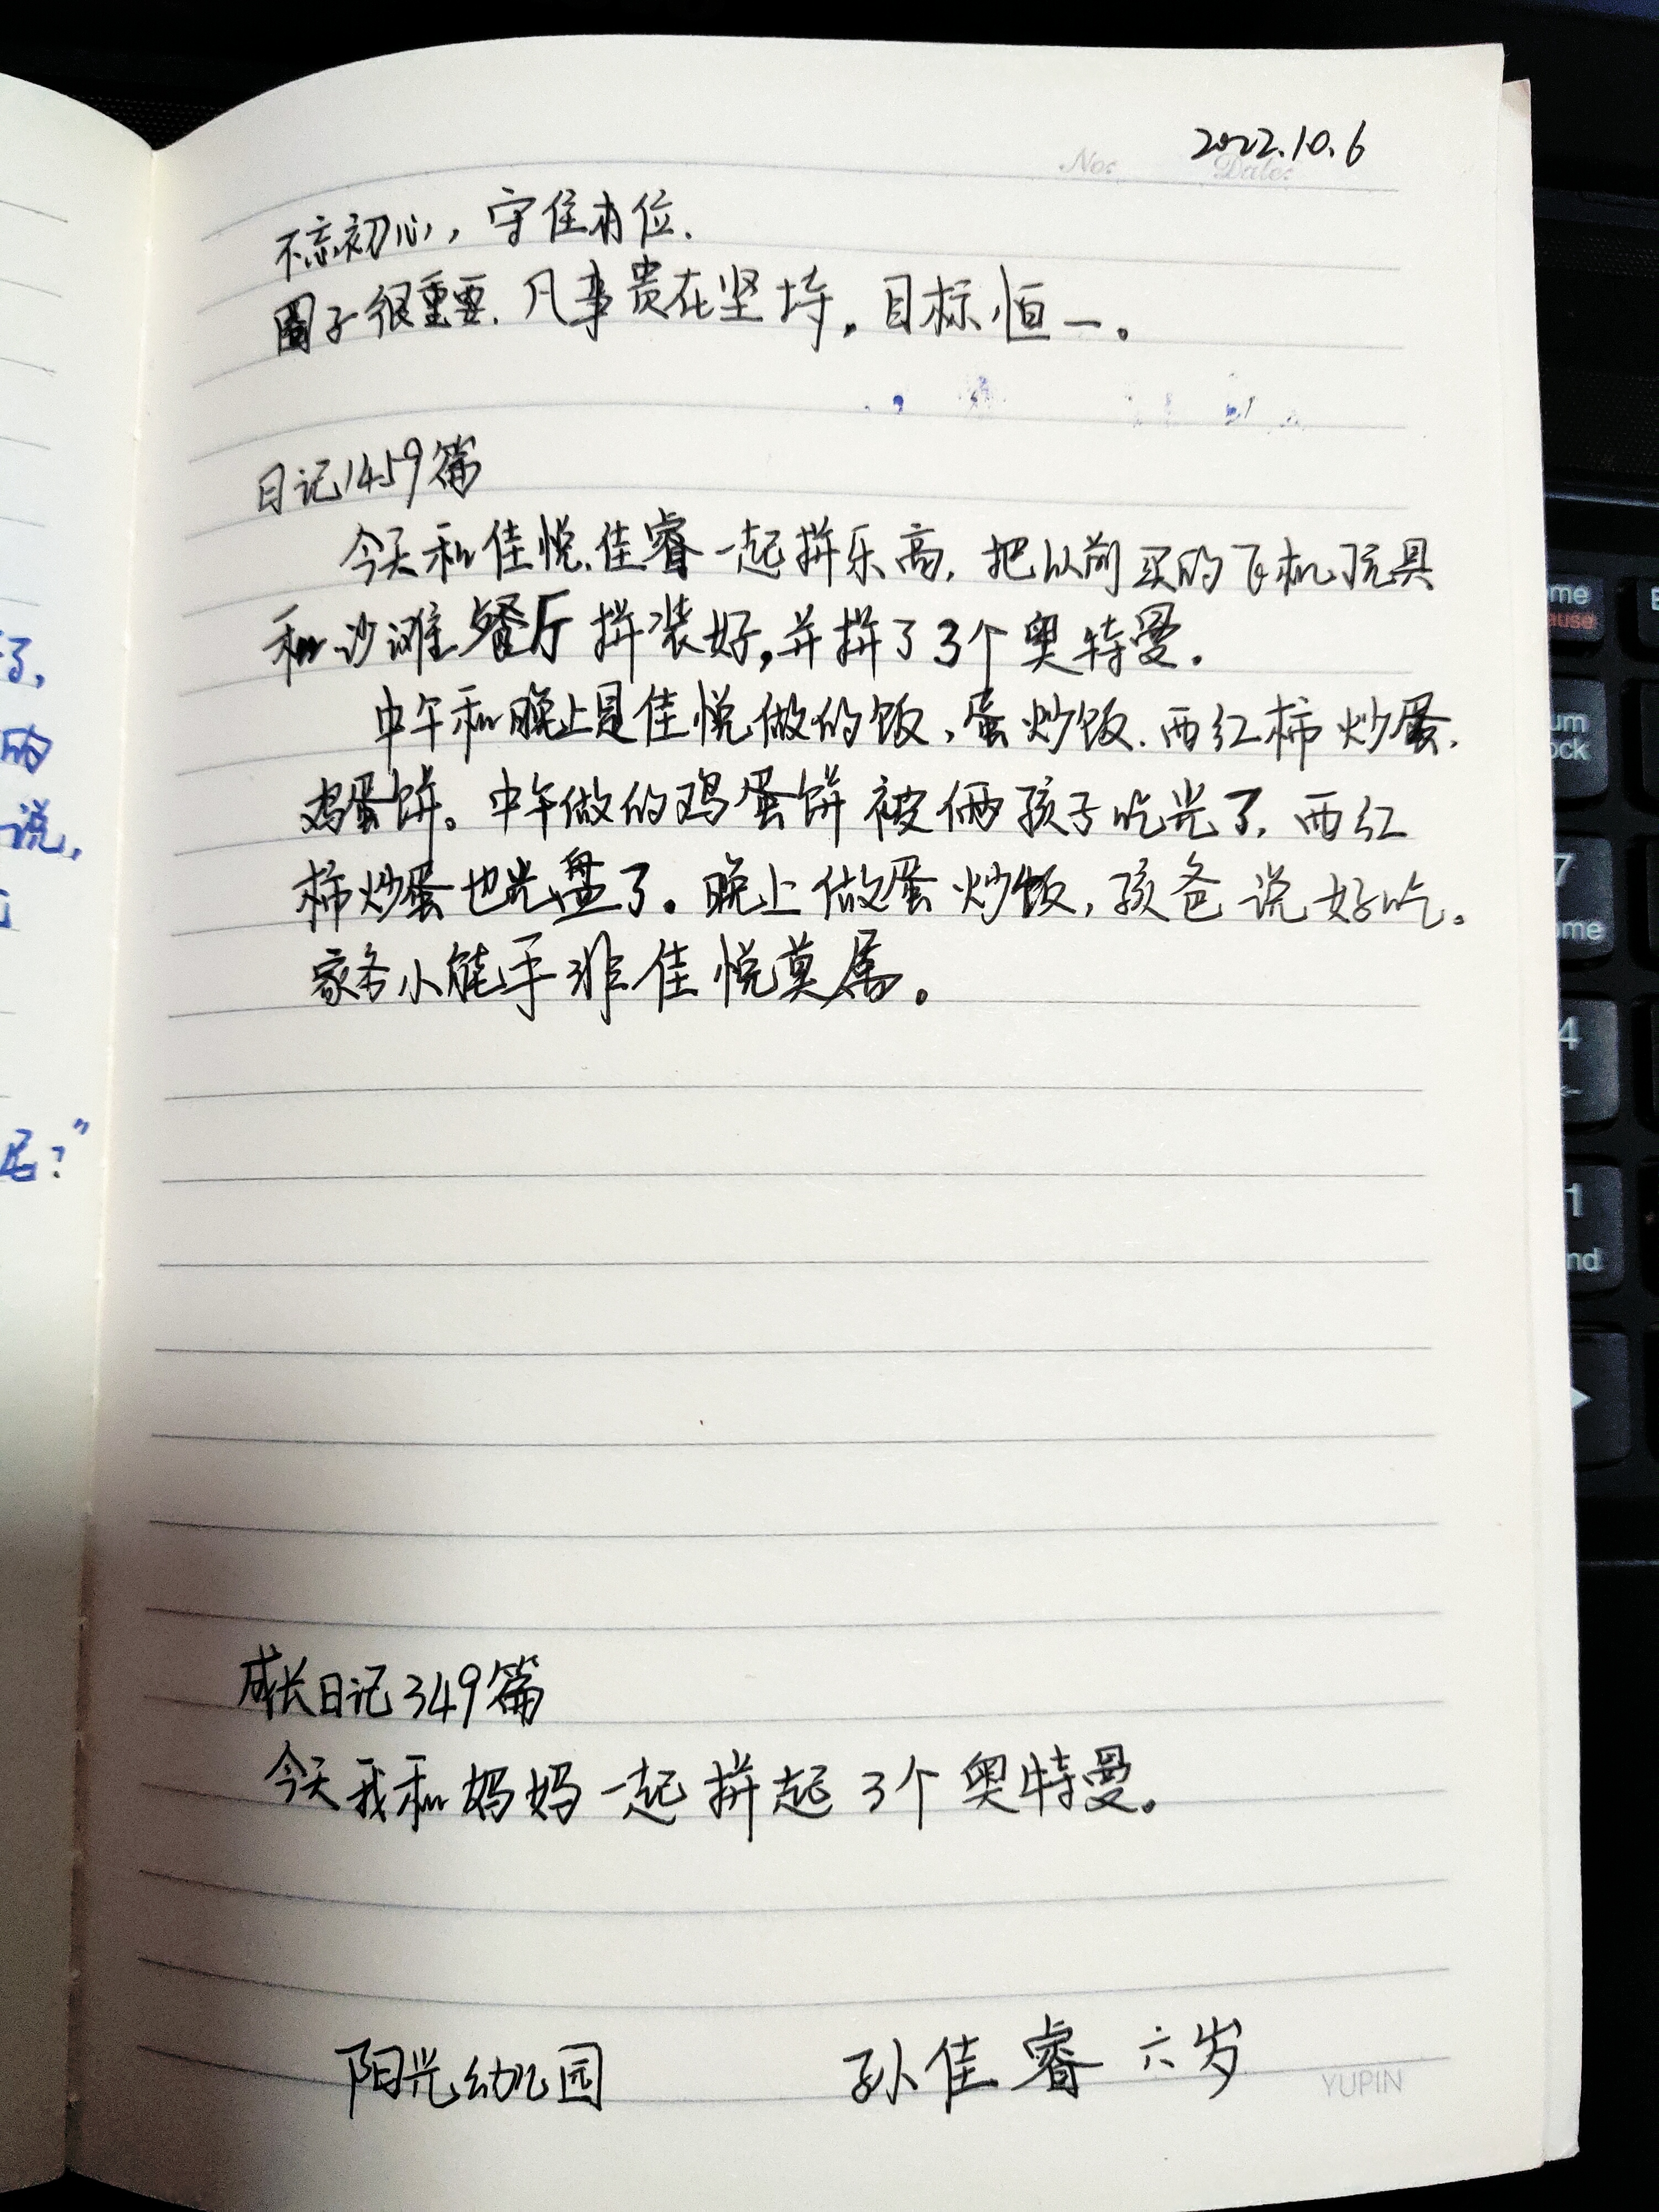 2022.10.6
No:
Date:
不忘初心，守住本位.
圈子很重要.凡事贵在坚持。目标恒一。
日记1459篇
今天和佳悦.佳睿一起拼乐高,把以前买的飞机玩具
和沙滩餐厅拼装好,并拼了3个奥特曼。
中午和晚上是佳悦做的饭、蛋炒饭.西红柿炒蛋.
鸡蛋饼。中午做的鸡蛋饼被俩孩子吃光了,西红
柿炒蛋也光盘了。晚上做蛋炒饭,孩爸说好吃。
家务小能手非佳悦莫属。
成长日记349篇
今天我和妈妈一起拼起3个奥特曼。
阳光幼儿园 孙佳睿 六岁
YUPIN
了,
的
说,
呢?"
7
4
1